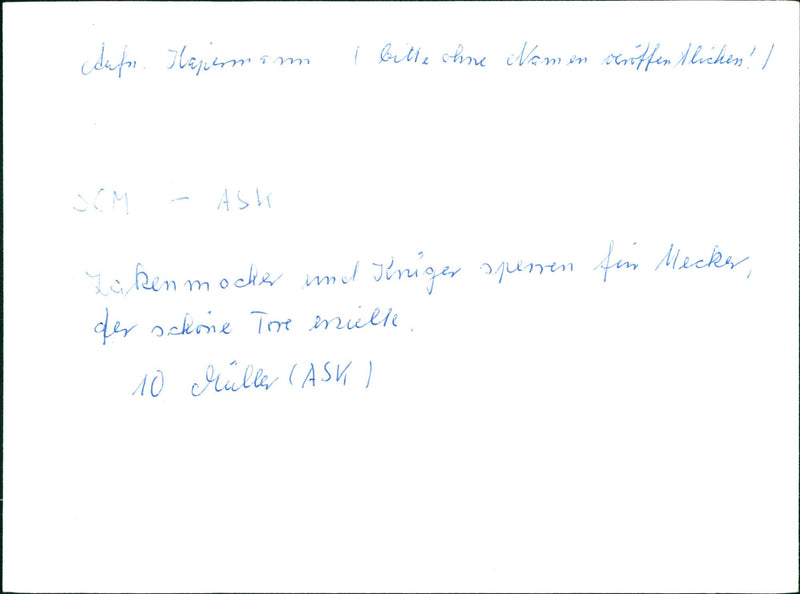 Aufn. Hajermann (bitte ohne Namen veröffentlichen!)
SCM - ASK
und Krüger sperren für Mecker,
der schöne Tore erzielte.
10 Müller (ASK)